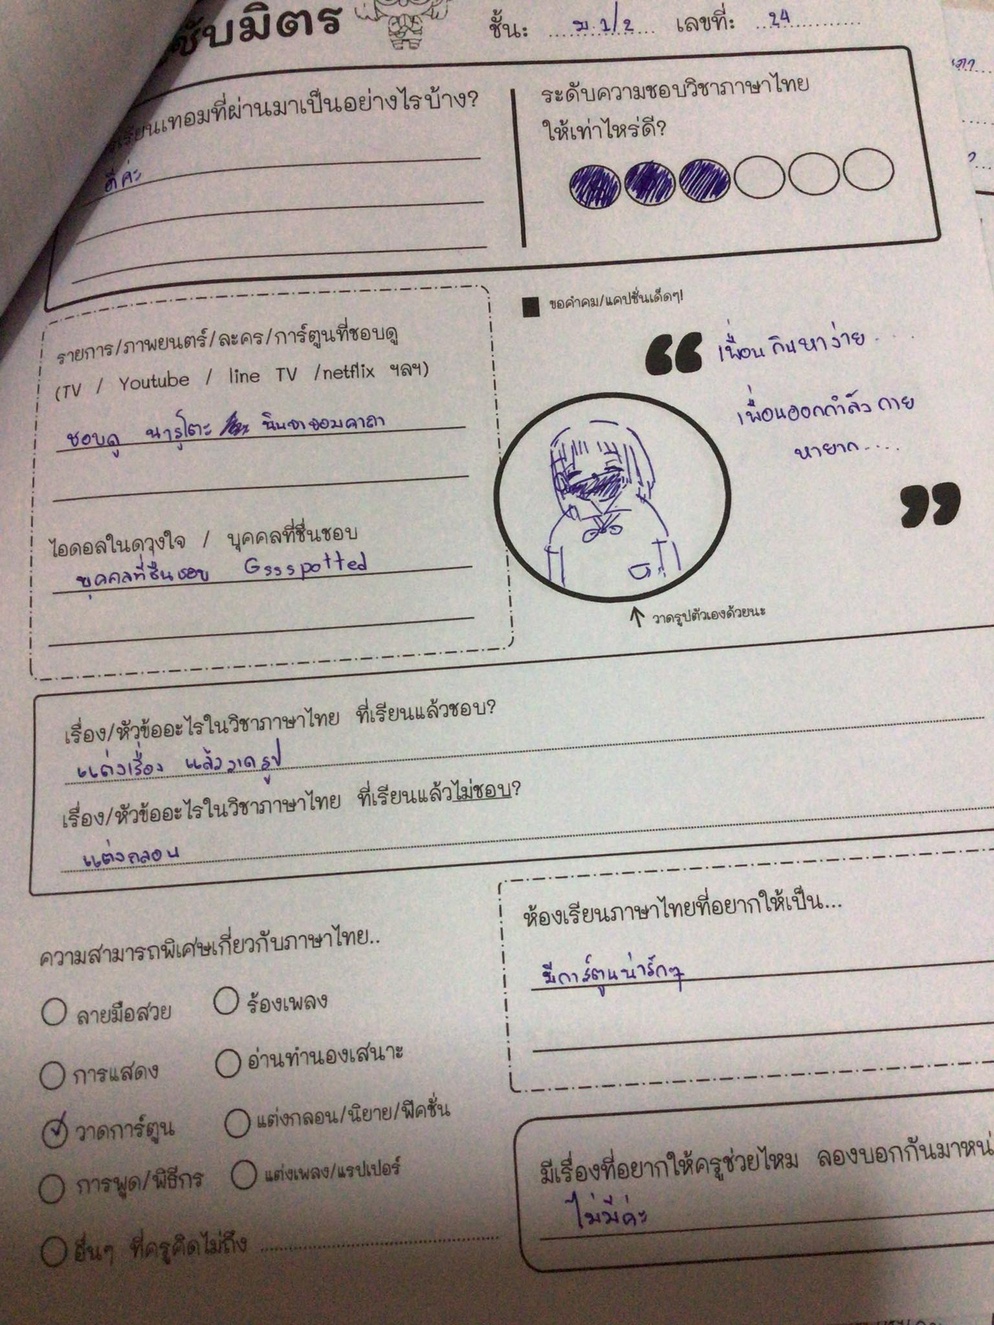 ชั้น: ม.2/2 เลขที่: 24
เรียนเทอมที่ผ่านมาเป็นอย่างไรบ้าง?
ดีค่ะ
ระดับความชอบวิชาภาษาไทย
ให้เท่าไหร่ดี?
รายการ/ภาพยนตร์/ละคร/การ์ตูนที่ชอบดู
(TV / Youtube / line TV /netflix ฯลฯ)
ชอบดู นารูโตะ นินจาจอมคาถา
ไอดอลในดวงใจ / บุคคลที่ชื่นชอบ
บุคคลที่ชื่นชอบ Gssspotted
ขอคำคม/แคปชั่นเด็ดๆ!
“ เพื่อนกินหาง่าย ....
เพื่อนออกกำลังกาย
หายาก.... ”
วาดรูปตัวเองด้วยนะ
เรื่อง/หัวข้ออะไรในวิชาภาษาไทย ที่เรียนแล้วชอบ?
แต่งเรื่อง แล้ววาดรูป
เรื่อง/หัวข้ออะไรในวิชาภาษาไทย ที่เรียนแล้วไม่ชอบ?
แต่งกลอน
ความสามารถพิเศษเกี่ยวกับภาษาไทย..
ลายมือสวย ร้องเพลง
การแสดง อ่านทำนองเสนาะ
วาดการ์ตูน แต่งกลอน/นิยาย/ฟิคชั่น
การพูด/พิธีกร แต่งเพลง/แรปเปอร์
อื่นๆ ที่ครูคิดไม่ถึง
ห้องเรียนภาษาไทยที่อยากให้เป็น...
มีการ์ตูนน่ารักๆ
มีเรื่องที่อยากให้ครูช่วยไหม ลองบอกกันมาหน่
ไม่มีค่ะ